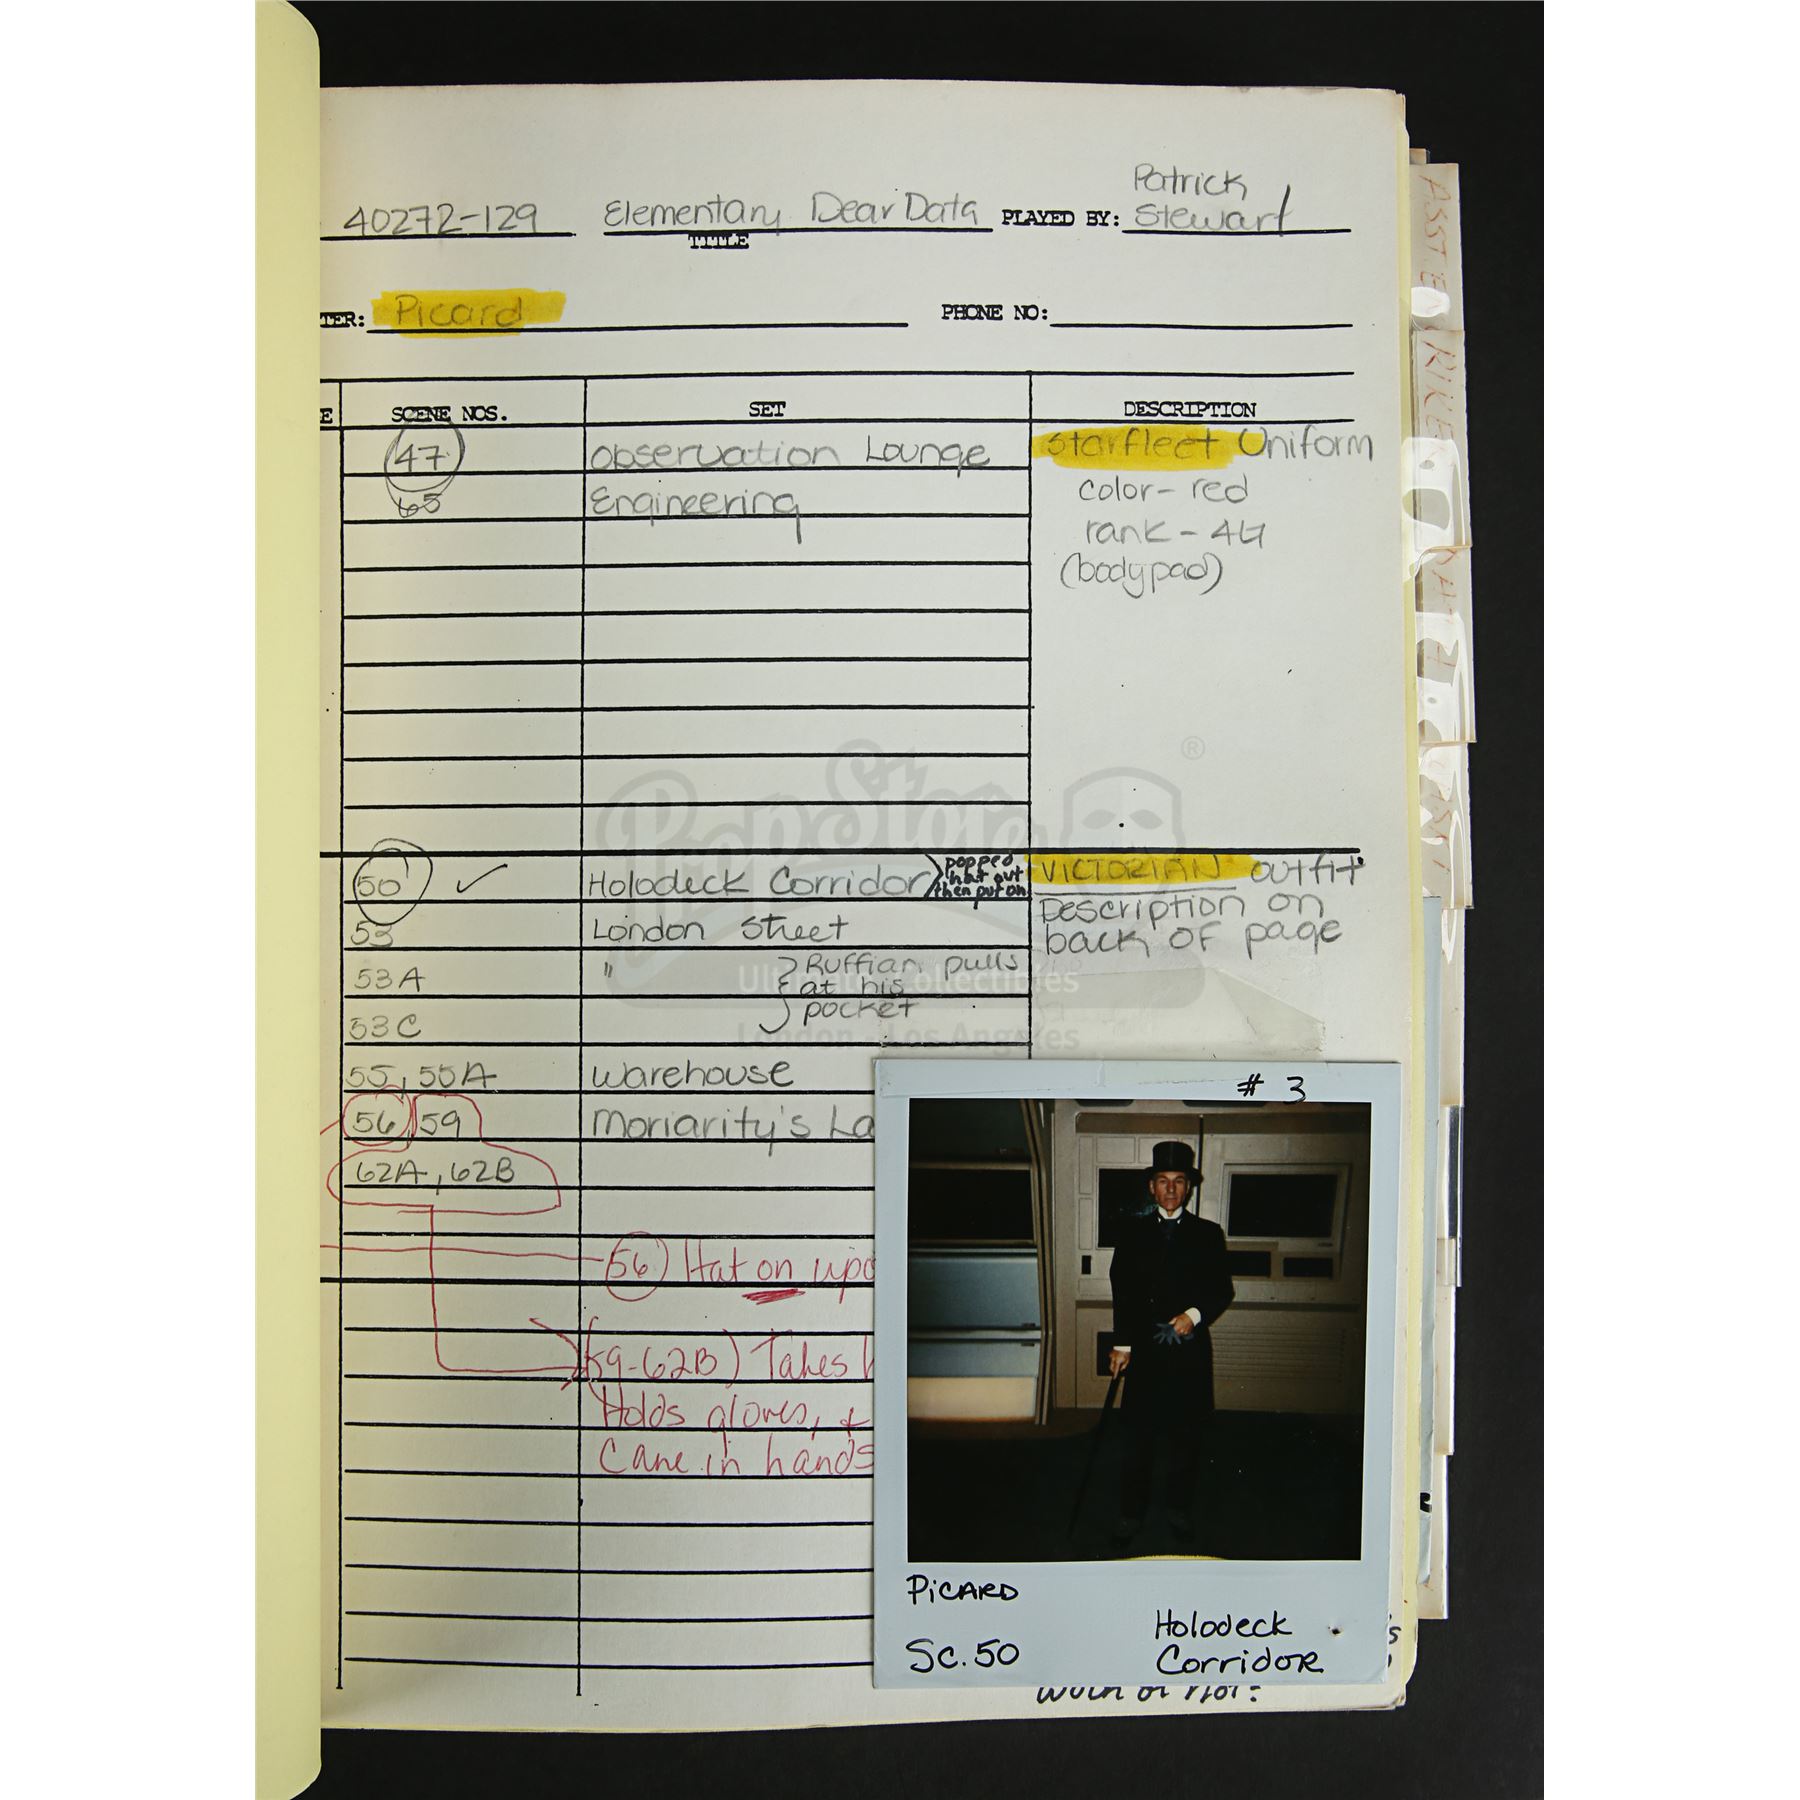 40272-129 Elementary Dear Data PLAYED BY: Patrick Stewart
TITLE
TER: Picard PHONE NO:
E SCENE NOS. SET DESCRIPTION
47 Observation Lounge Starfleet Uniform
65 Engineering color- red
rank -
(bodypad)
50 ✓ Holodeck Corridor popped hat out then put on VICTORIAN outfit
53 London Street Description on
back of page
53A " Ruffian pulls
at his
53C pocket
55, 55A Warehouse
56, 59 Moriarity's La
62A, 62B
56) Hat on upo
(59-62B) Takes h
Holds gloves, +
Cane in hands
# 3
PiCARD
Sc. 50 Holodeck
Corridor
PropStore ®
Ultimate Collectibles
London · Los Angeles
ASST
RIKER